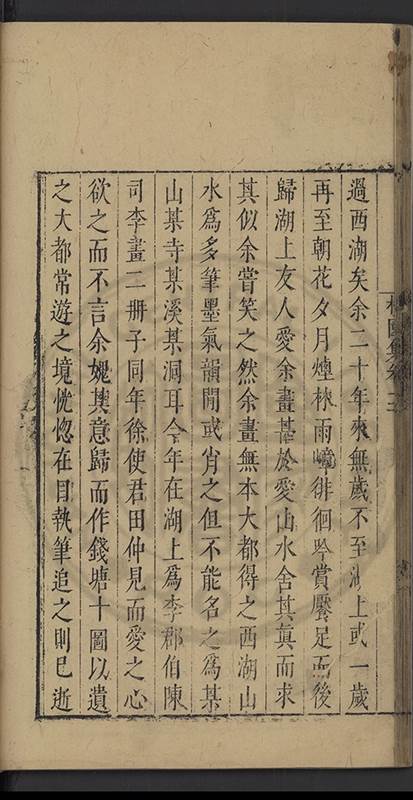 過西湖矣余二十年來無歲不至湖上或一歲
再至朝花夕月煙林雨嶂徘徊吟賞饜足而後
歸湖上友人愛余畫甚於愛山水舍其真而求
其似余嘗笑之然余畫無本大都得之西湖山
水爲多筆墨氣韻間或肖之但不能名之爲某
山某寺某溪某洞耳今年在湖上爲李郡伯陳
司李畫二冊子同年徐使君田仲見而愛之心
欲之而不言余媿其意歸而作錢塘十圖以遺
之大都常遊之境恍惚在目執筆追之則已逝